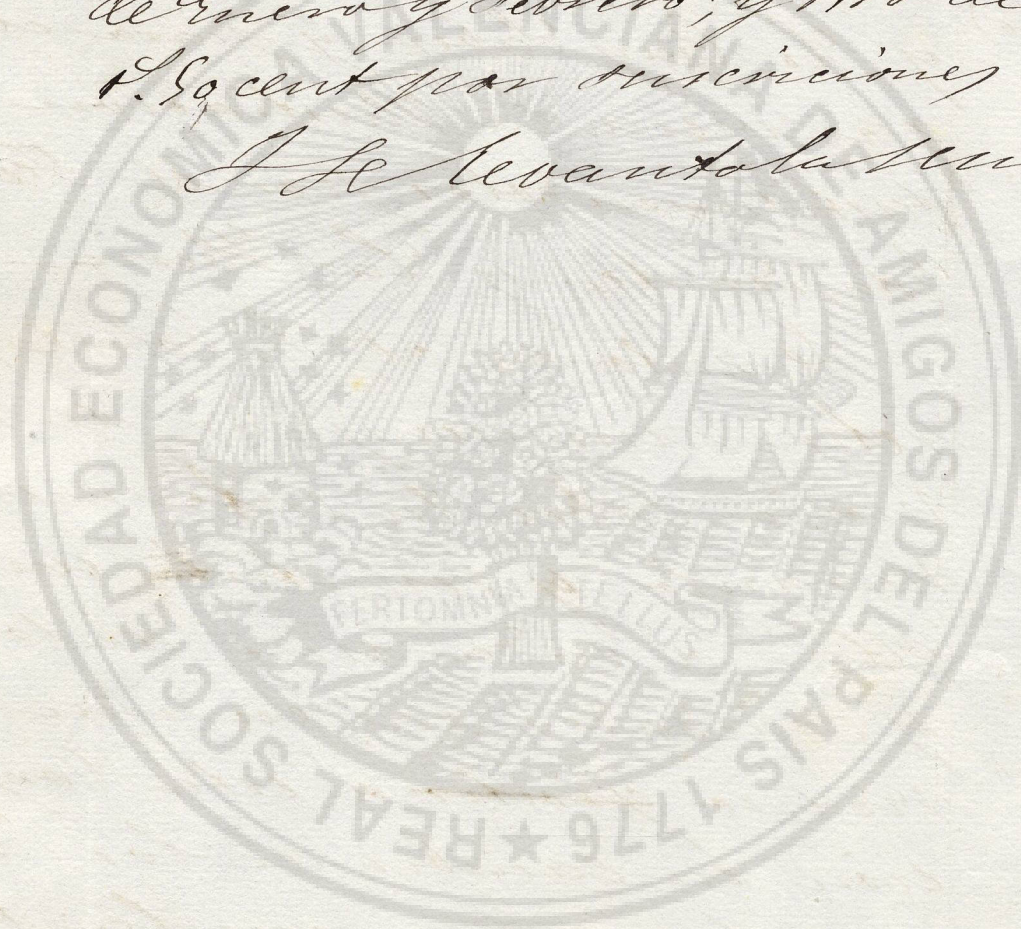 de Enero y Febrero; y
cent por suscriciones
Y Se levanto la
REAL SOCIEDAD ECONOMICA VALENCIANA DE AMIGOS DEL PAIS 1776 ★
FERT OMNIA TELLUS